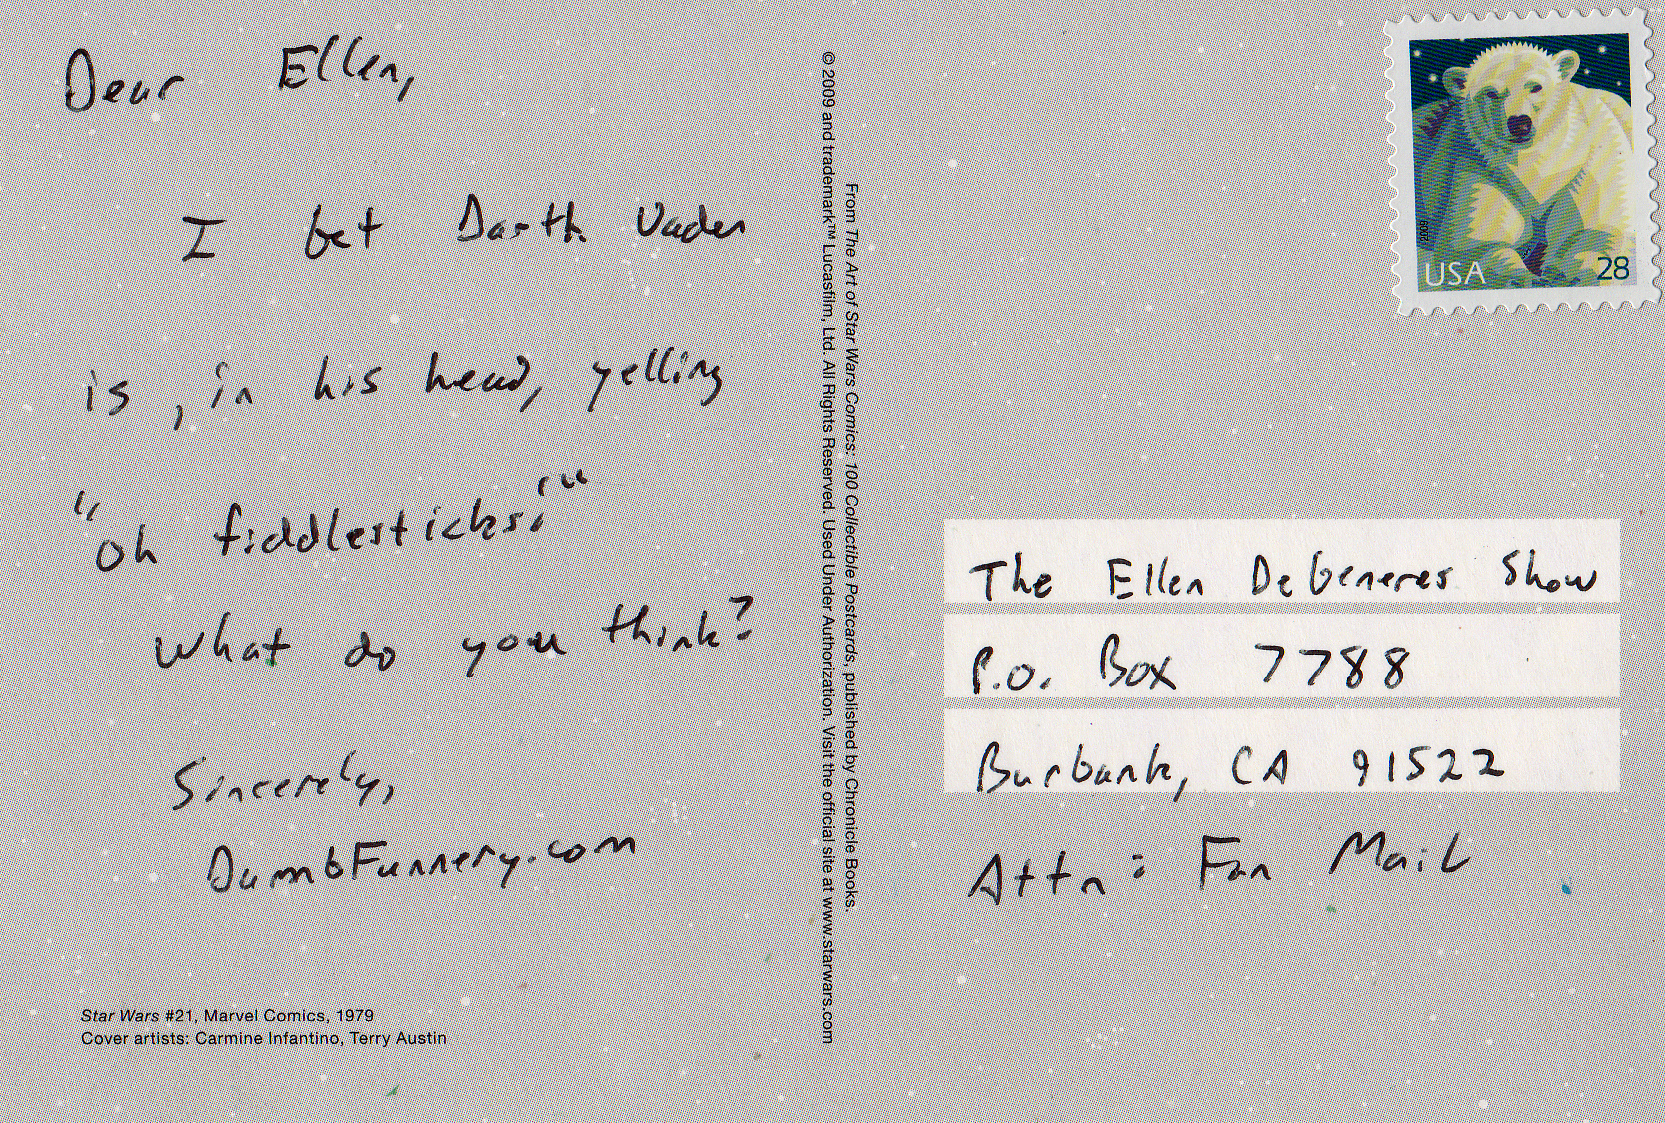 Dear Ellen,
I bet Darth Vader
is, in his head, yelling
"oh fiddlesticks!"
What do you think?
Sincerely,
DumbFunnery.com
Star Wars #21, Marvel Comics, 1979
Cover artists: Carmine Infantino, Terry Austin
From The Art of Star Wars Comics: 100 Collectible Postcards, published by Chronicle Books.
© 2009 and trademark™ Lucasfilm, Ltd. All Rights Reserved. Used Under Authorization. Visit the official site at www.starwars.com
2009
USA 28
The Ellen DeGeneres Show
P.O. Box 7788
Burbank, CA 91522
Attn: Fan Mail